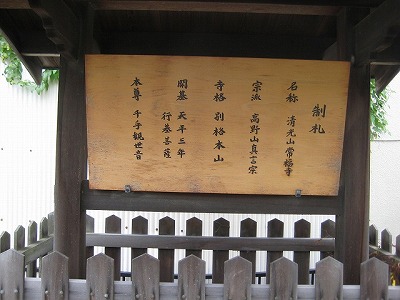 制札
名称 清光山常福寺
宗派 高野山真言宗
寺格 別格本山
開基 天平三年
行基菩薩
本尊 千手観世音